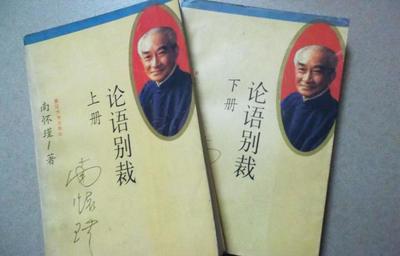 论语别裁
上册
南怀瑾/著
南怀瑾
论语别裁
下册